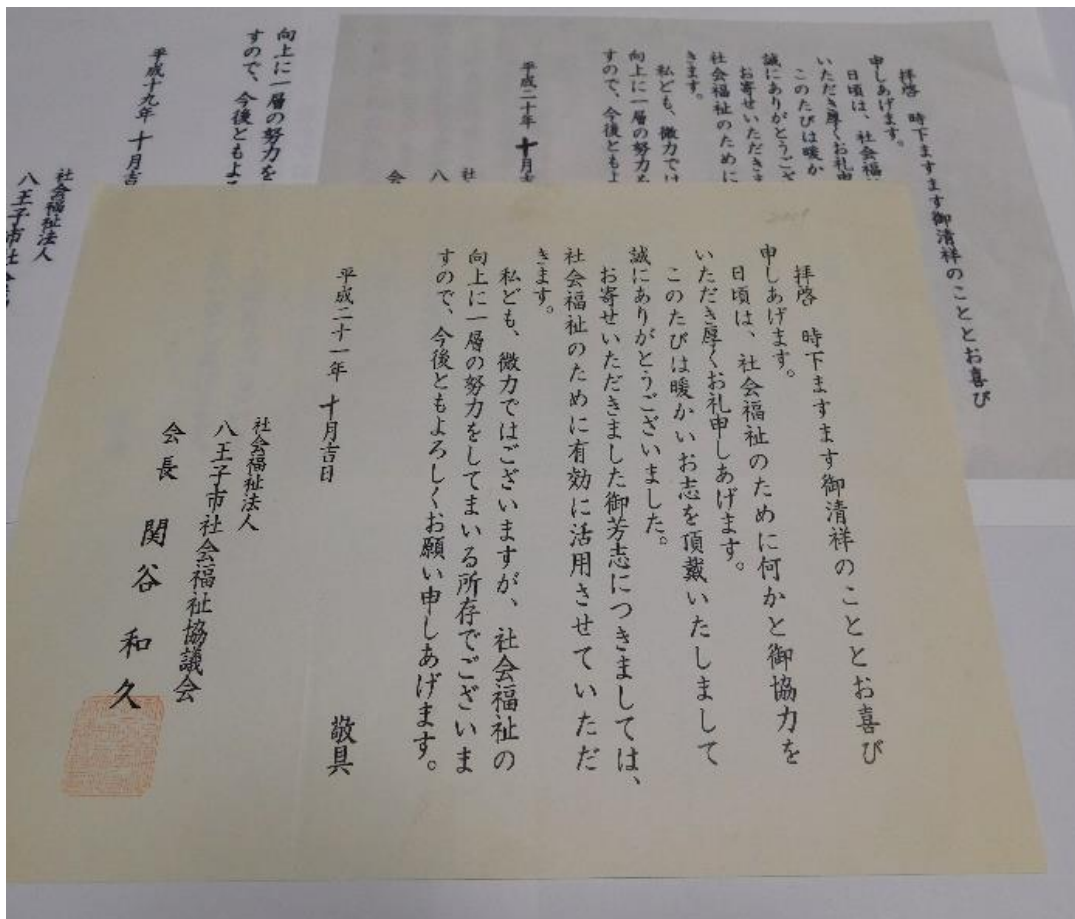 2009
拝啓 時下ますます御清祥のこととお喜び
申しあげます。
日頃は、社会福祉のために何かと御協力を
いただき厚くお礼申しあげます。
このたびは暖かいお志を頂戴いたしまして
誠にありがとうございました。
お寄せいただきました御芳志につきましては、
社会福祉のために有効に活用させていただ
きます。
私ども、微力ではございますが、社会福祉の
向上に一層の努力をしてまいる所存でございま
すので、今後ともよろしくお願い申しあげます。
敬具
平成二十一年 十月吉日
社会福祉法人
八王子市社会福祉協議会
会長 関谷和久
拝啓 時下ますます御清祥のこととお喜び
申しあげます。
日頃は、社会福
いただき厚くお礼申
このたびは暖か
誠にありがとうござ
お寄せいただきま
社会福祉のために
きます。
私ども、微力では
向上に一層の努力を
すので、今後ともよ
平成二十年 十月吉
社
八
会
向上に一層の努力を
すので、今後ともよろ
平成十九年 十月吉
社会福祉法人
八王子市社会